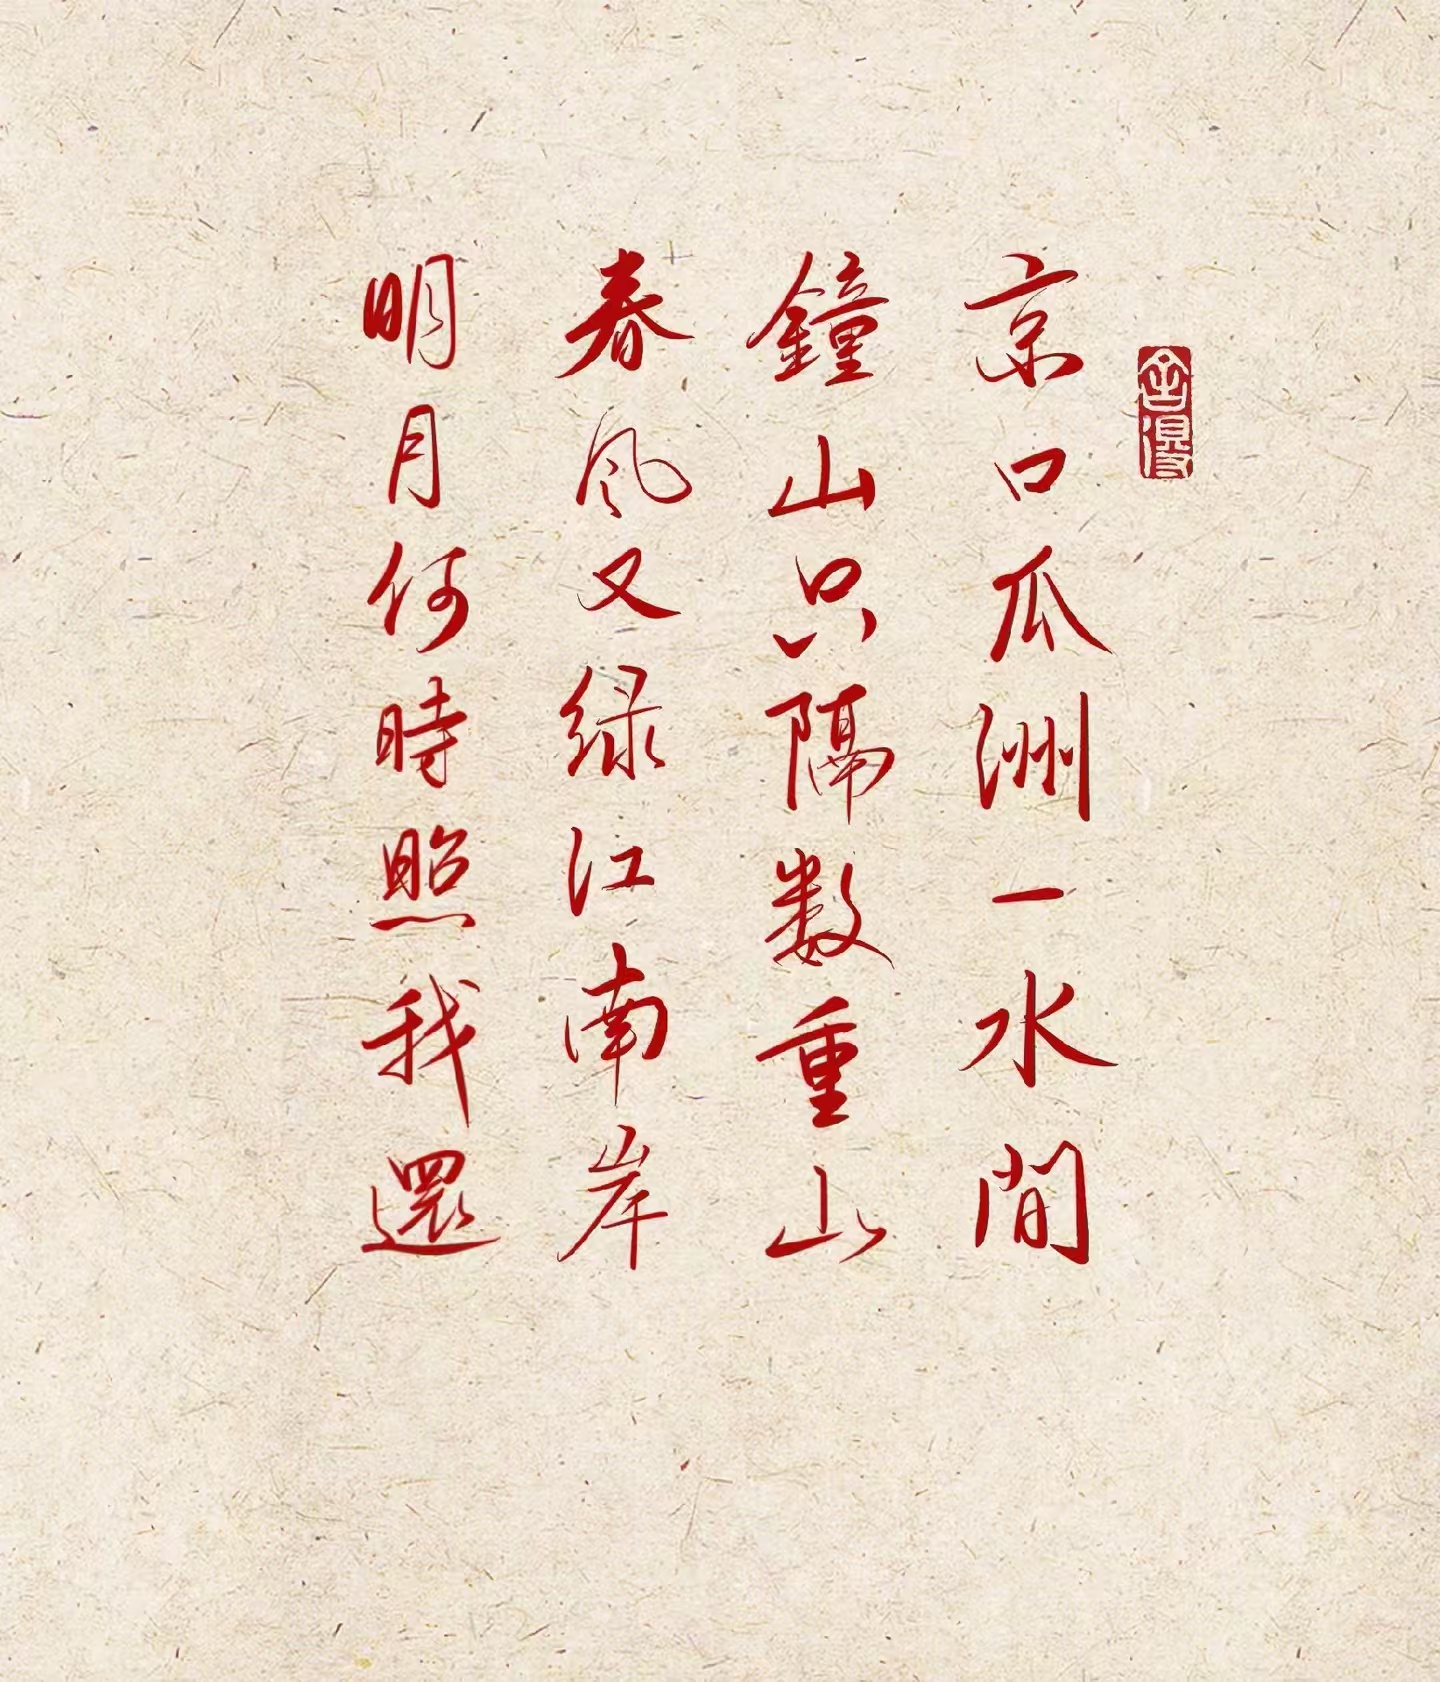 京口瓜洲一水間
鐘山只隔数重山
春风又绿江南岸
明月何時照我還